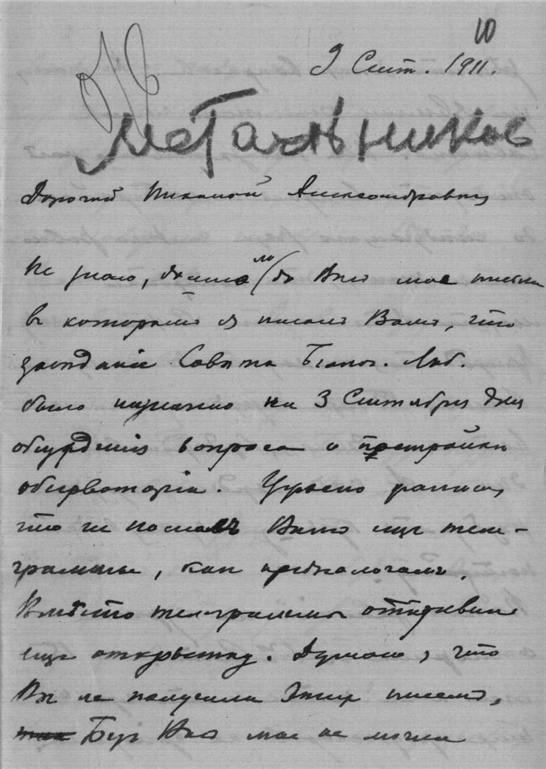 10
9 Сент. 1911.
Метальников
Дорогой Николай Александрович
Не знаю, дошло ли до Васъ мое письмо
в которомъ я писалъ Вамъ, что
заседаніе Совета Биолог. Лаб.
было назначено на 3 Сентября для
обсужденія вопроса о постройки
обсерваторіи. Ужасно
что не послалъ Вамъ еще теле-
граммы, как предполагалъ.
Вместо телеграммы отправил
еще открытку. Думаю, что
Вы не получили этих писемъ,
Без Васъ мы не могли